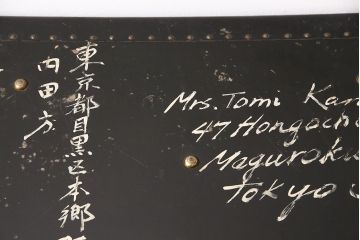 東京都目黒区本郷
内田方
Mrs. Tomi
47 Hongocho
Meguroku
Tokyo